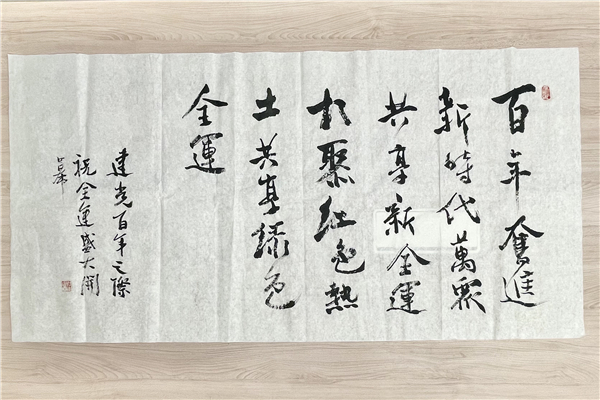 百年奮進
新時代萬眾
共享新全運
相聚红色熱
土共享绿色
全運
建党百年之際
祝全運盛大開
幕